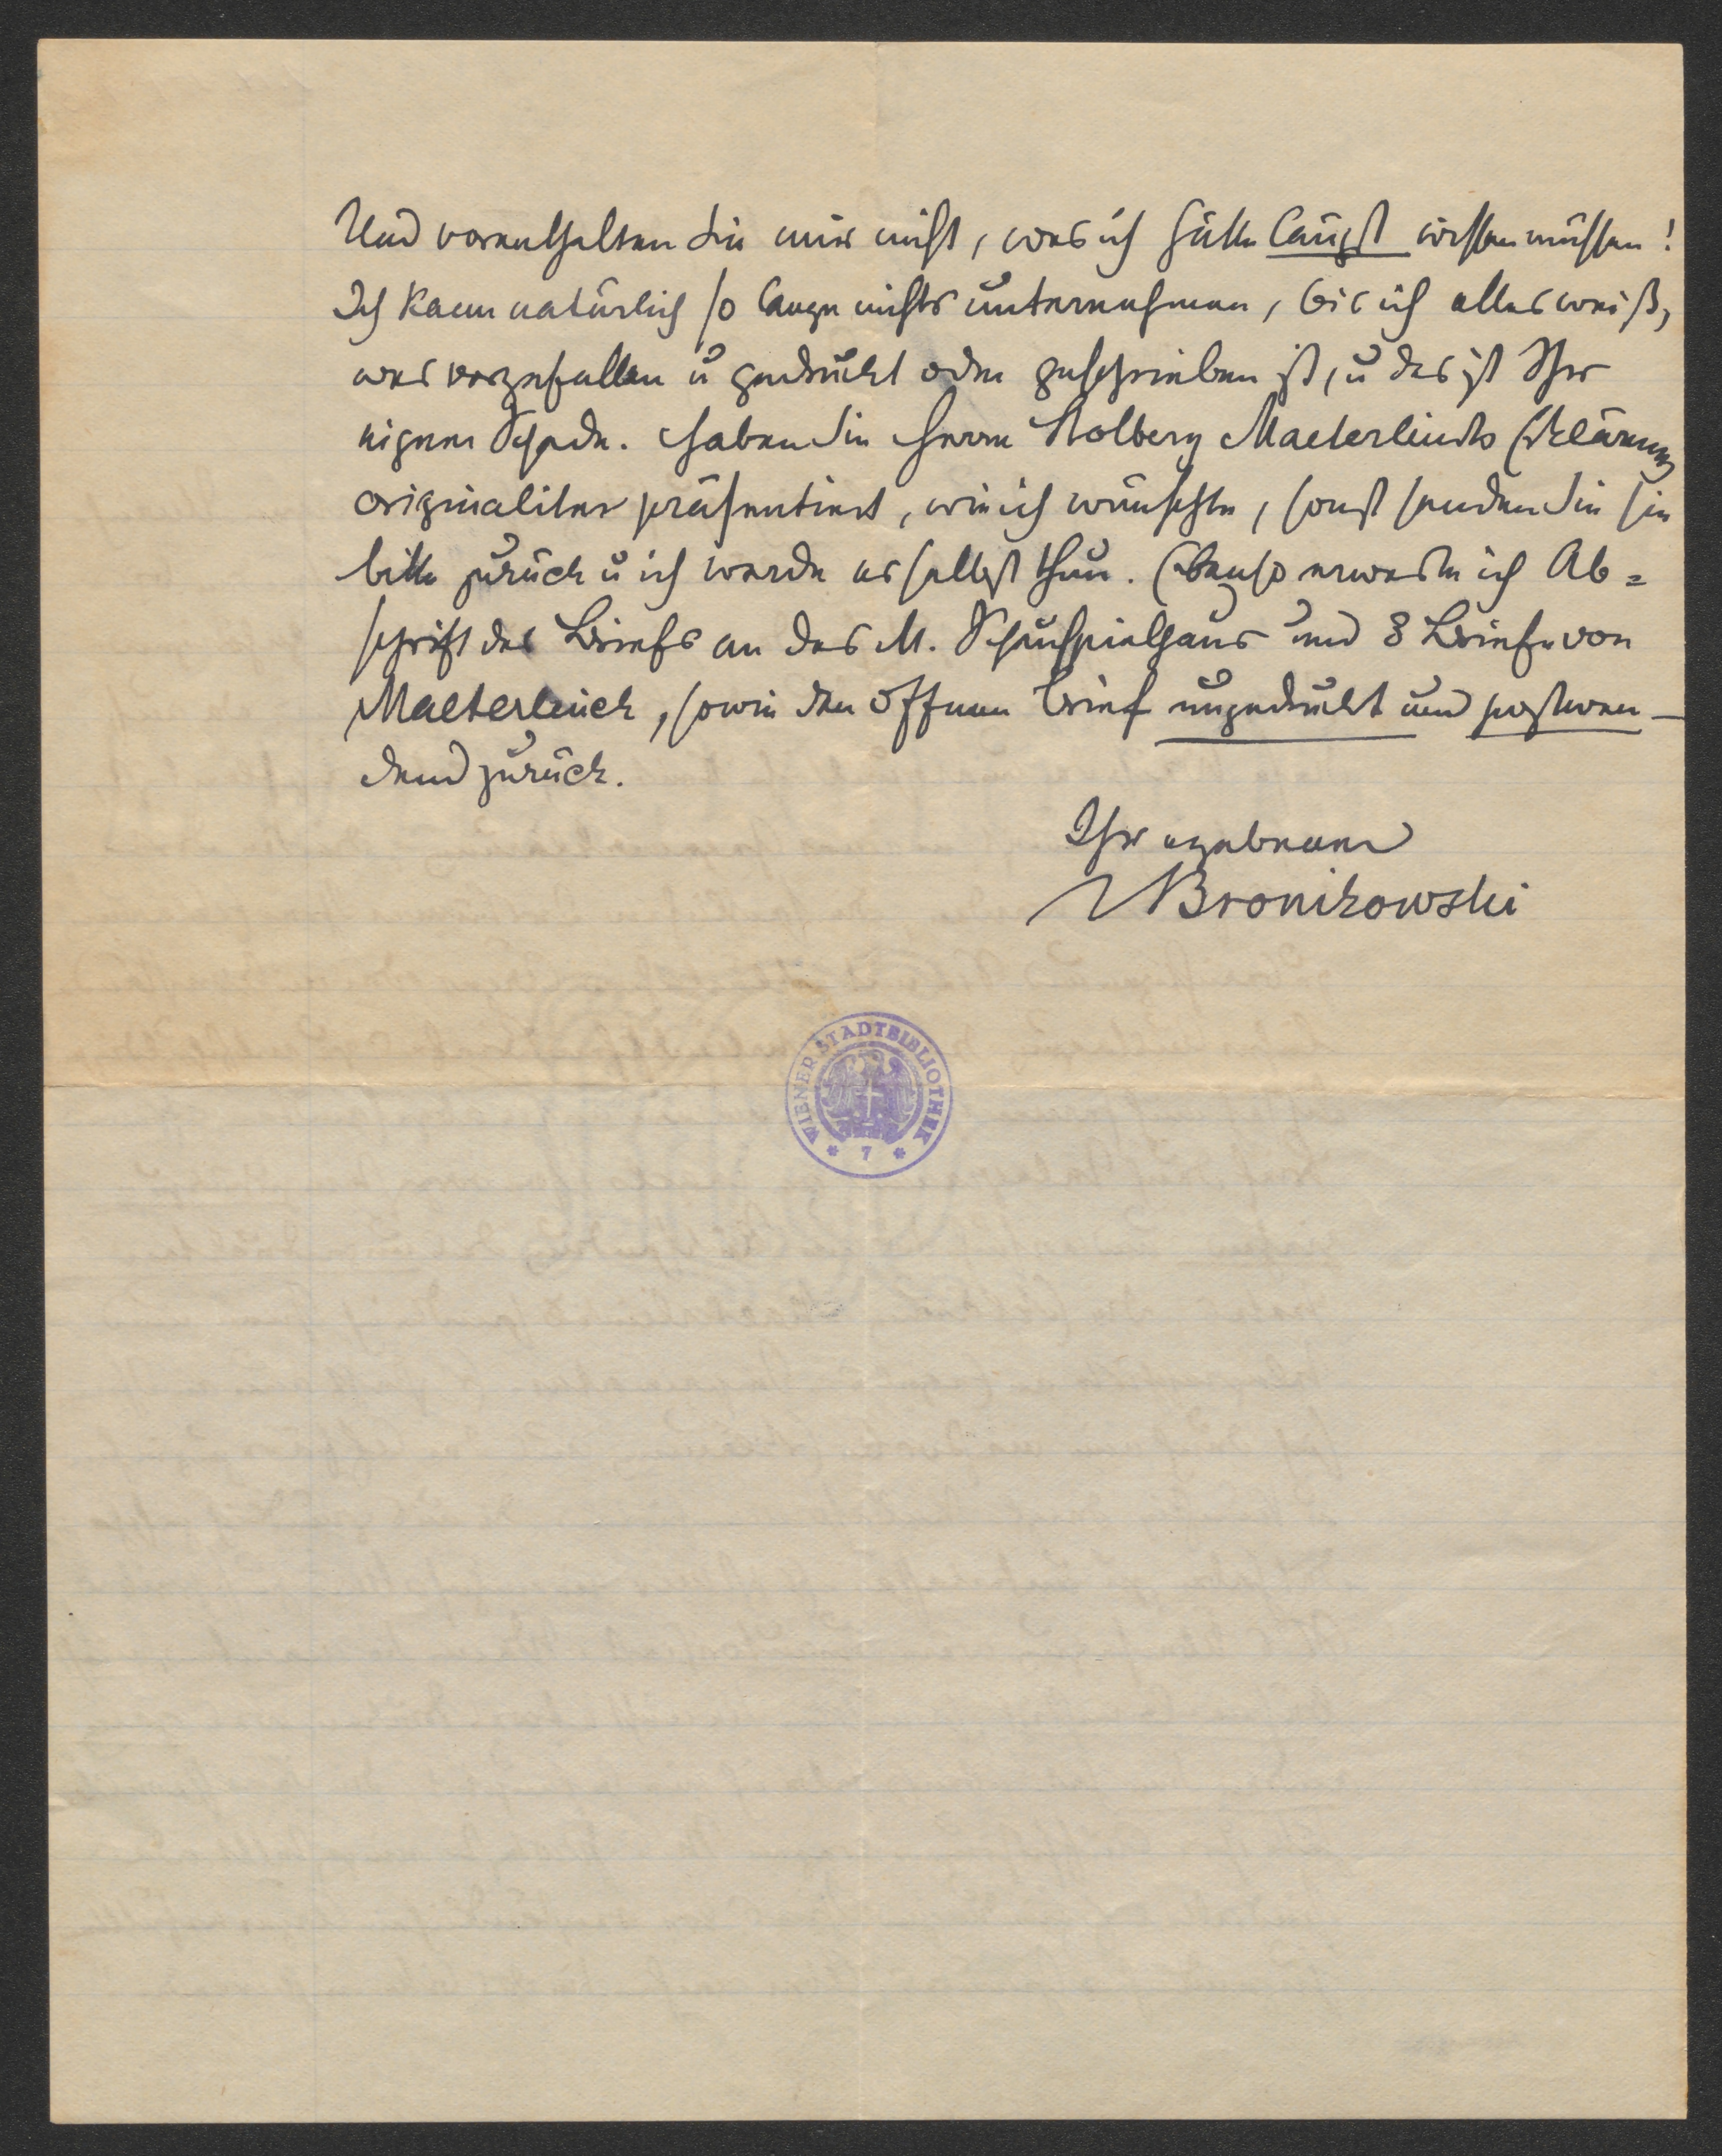 Und vorenthalten Sie mir nicht, was ich hätte längst wissen müssen!
Ich kann natürlich so lange nichts unternehmen, bis ich alles weiß,
was vorgefallen u gedruckt oder geschrieben ist, u das ist Ihr
eigner Schade. Haben Sie Herrn Stolberg Maeterlincks Erklärung
originaliter präsentiert, wie ich wünschte, sonst senden Sie sie
bitte zurück u ich werde es selbst thun. Ebenso erwarte ich Ab=
schrift des Briefs an das M. Schauspielhaus und 3 Briefe von
Maeterlinck, sowie den offnen Brief ungedruckt und postwen-
dend zurück.
Ihr ergebener
Bronikowski
WIENER STADTBIBLIOTHEK
* 7 *